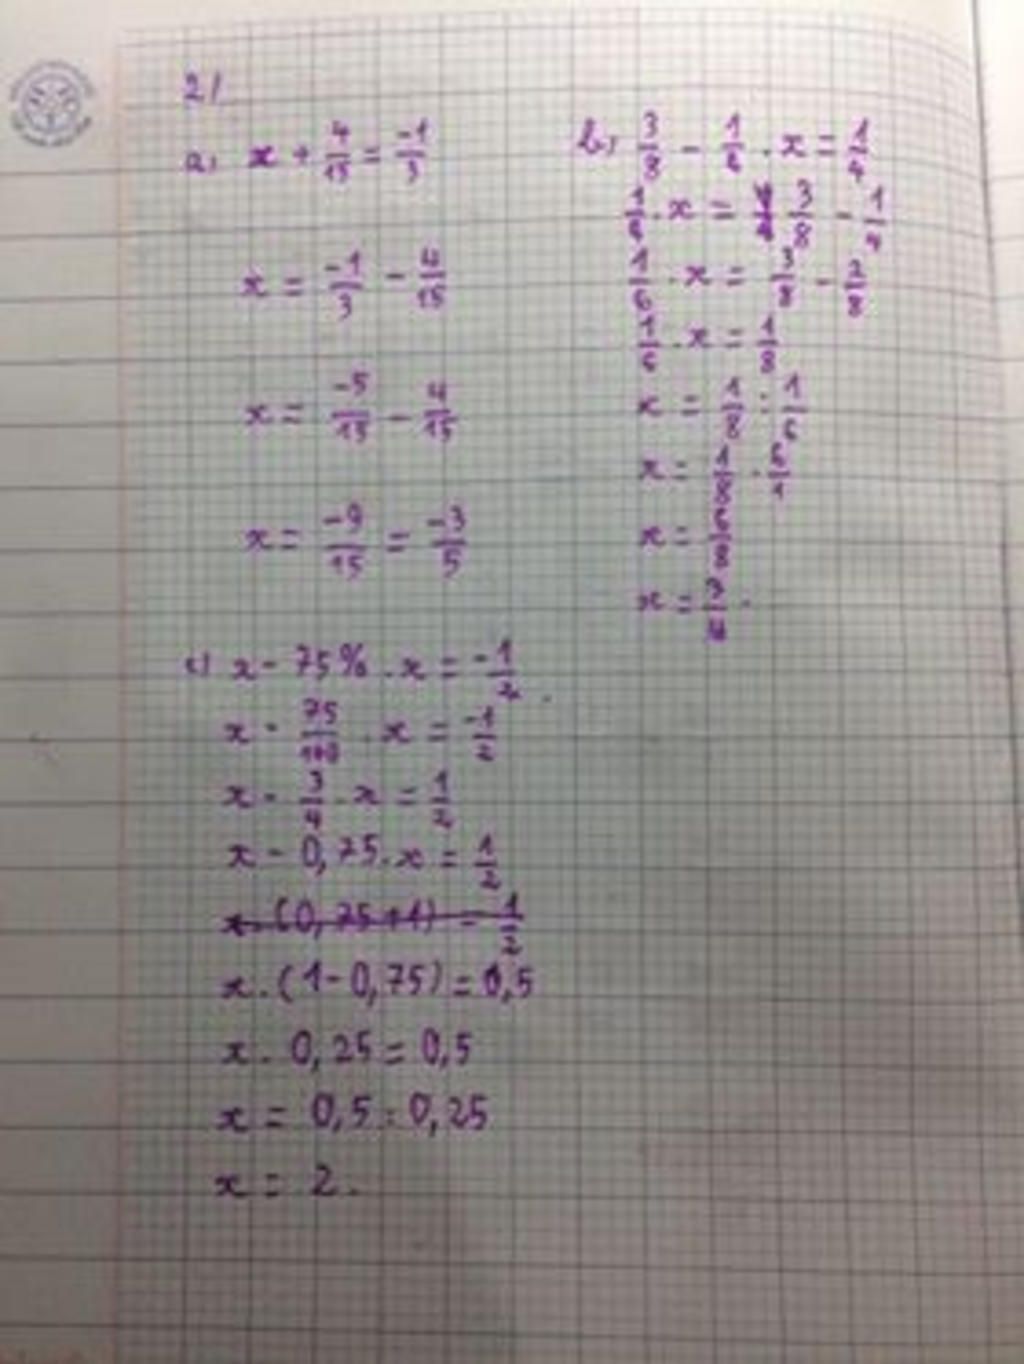 2/
a, x + 4/15 = -1/3
x = -1/3 - 4/15
x = -5/15 - 4/15
x = -9/15 = -3/5
b, 3/8 - 1/6 . x = 1/4
1/6 . x = 3/8 - 1/4
1/6 . x = 3/8 - 2/8
1/6 . x = 1/8
x = 1/8 : 1/6
x = 1/8 . 6/1
x = 6/8
x = 3/4 .
c) x - 75% . x = -1/2
x - 75/100 . x = -1/2
x - 3/4 . x = 1/2
x - 0,75 . x = 1/2
x . (0,75+1) = 1/2
x . (1-0,75) = 0,5
x . 0,25 = 0,5
x = 0,5 : 0,25
x = 2 .